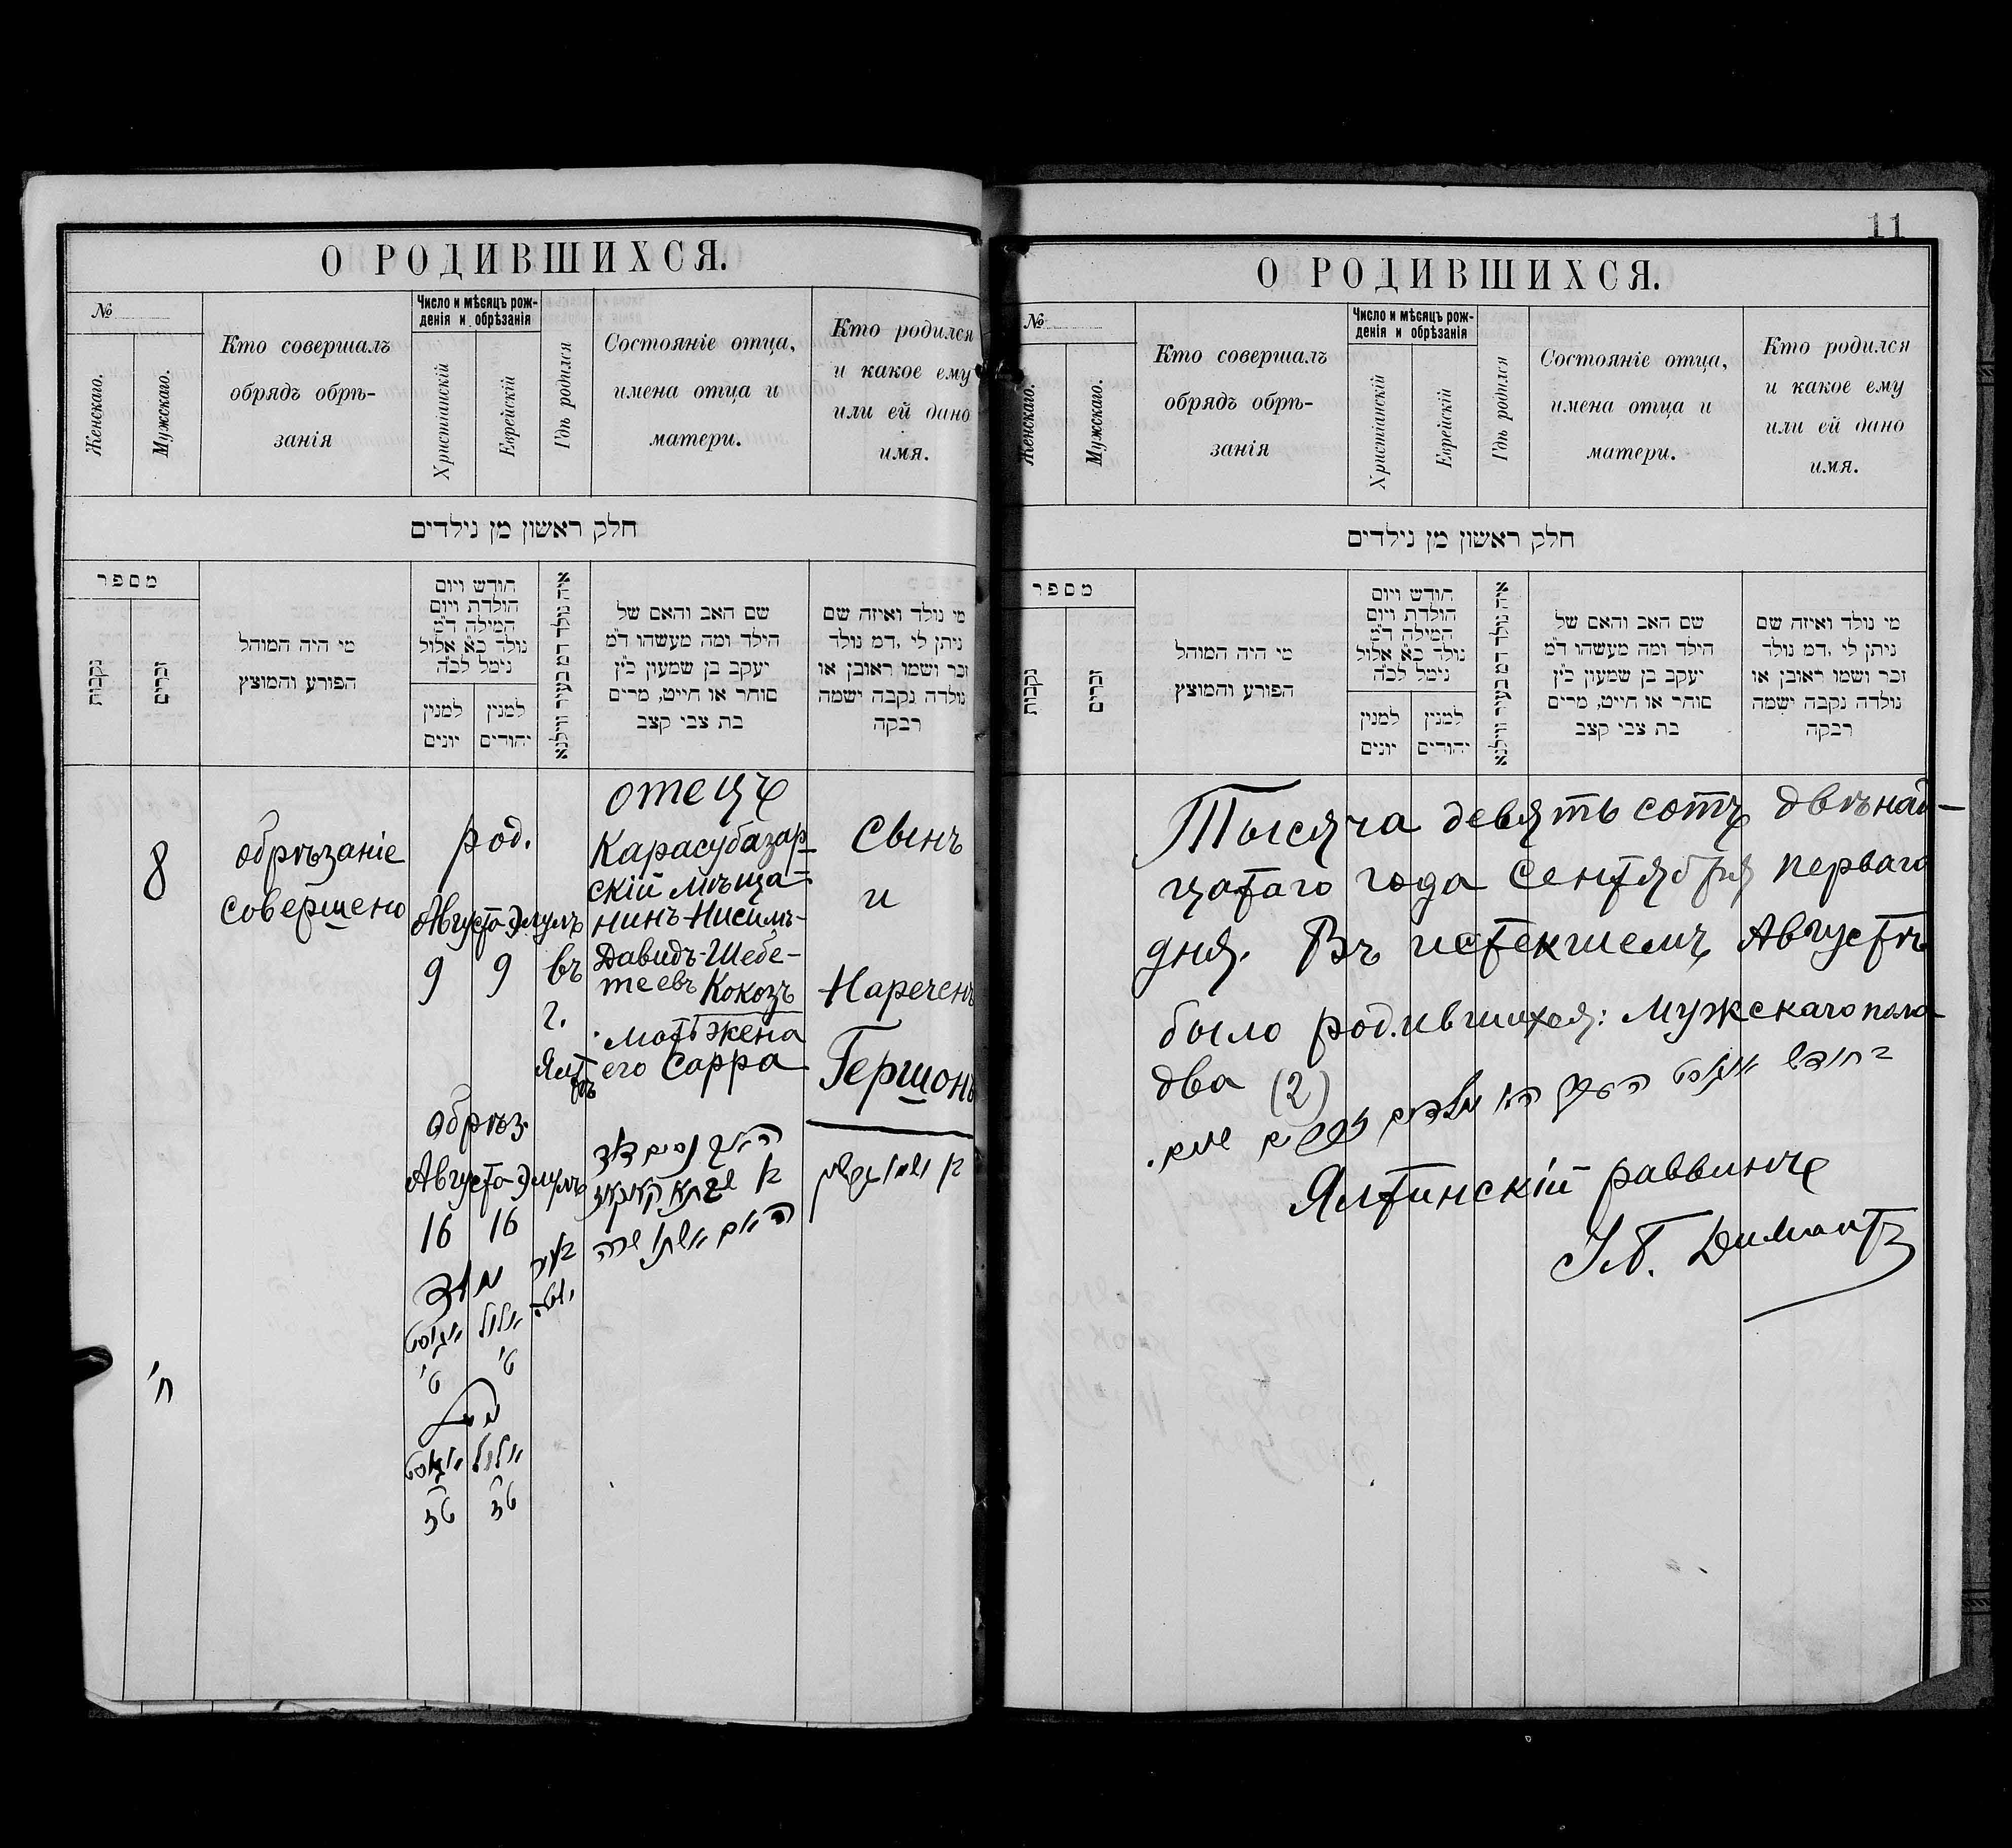 О РОДИВШИХСЯ.
№
Женскаго.
Мужскаго.
Кто совершалъ
обрядъ обрѣ-
занія
Число и мѣсяцъ рож-
денія и обрѣзанія
Христіанскій
Еврейскій
Гдѣ родился
Состояніе отца,
имена отца и
матери.
Кто родился
и какое ему
или ей дано
имя.
חלק ראשון מן נילדים
מספר
נקבות
זכרים
מי היה המוהל
הפורע והמוצץ
חודש ויום
הולדת ויום
המילה ד"מ
נולד כ"א אלול
נימל לכ"ה
למנין
יונים
למנין
יהודים
איה נולד דמ בעיר ווילנא
שם האב והאם של
הילד ומה מעשהו ד"מ
יעקב בן שמעון כ"ץ
סוחר או חייט, מרים
בת צבי קצב
מי נולד ואיזה שם
ניתן לי ,דמ נולד
זכר ושמו ראובן או
נולדה נקבה ישמה
רבקה
8
обрѣзаніе
совершено
род.
Августа Элулъ
9 9
въ
г.
Обрѣз.
Августа Элулъ
16 16
отецъ
Карасубазар-
скій мѣща-
нинъ Нисимъ-
Давидъ-Шебе-
теевъ Кокозъ
мать жена
его Сарра
Сынъ
и
Нареченъ
Гершонъ
האב נסים דוד
בן שבתא קאקאז
האם אשתו שרה
בן ושמו גרשון
בעיר
יאלטה
נולד
אוגוסט אלול
ט' ט'
נימול
אוגוסט אלול
ט"ז ט"ז
ח'
11
О РОДИВШИХСЯ.
№
Женскаго.
Мужскаго.
Кто совершалъ
обрядъ обрѣ-
занія
Число и мѣсяцъ рож-
денія и обрѣзанія
Христіанскій
Еврейскій
Гдѣ родился
Состояніе отца,
имена отца и
матери.
Кто родился
и какое ему
или ей дано
имя.
חלק ראשון מן נילדים
מספר
נקבות
זכרים
מי היה המוהל
הפורע והמוצץ
חודש ויום
הולדת ויום
המילה ד"מ
נולד כ"א אלול
נימל לכ"ה
למנין
יונים
למנין
יהודים
איה נולד דמ בעיר ווילנא
שם האב והאם של
הילד ומה מעשהו ד"מ
יעקב בן שמעון כ"ץ
סוחר או חייט, מרים
בת צבי קצב
מי נולד ואיזה שם
ניתן לי ,דמ נולד
זכר ושמו ראובן או
נולדה נקבה ישמה
רבקה
Тысяча девятьсотъ двѣнад-
цатаго года Сентября перваго
дня. Въ истекшемъ Августѣ
было родившихся: мужскаго пола
два (2)
בחודש אוגוסט
Ялтинскій раввинъ
Димантъ